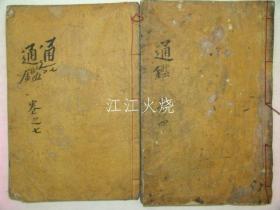 通鑑
四
通
通鑑
卷之七
江江火烧